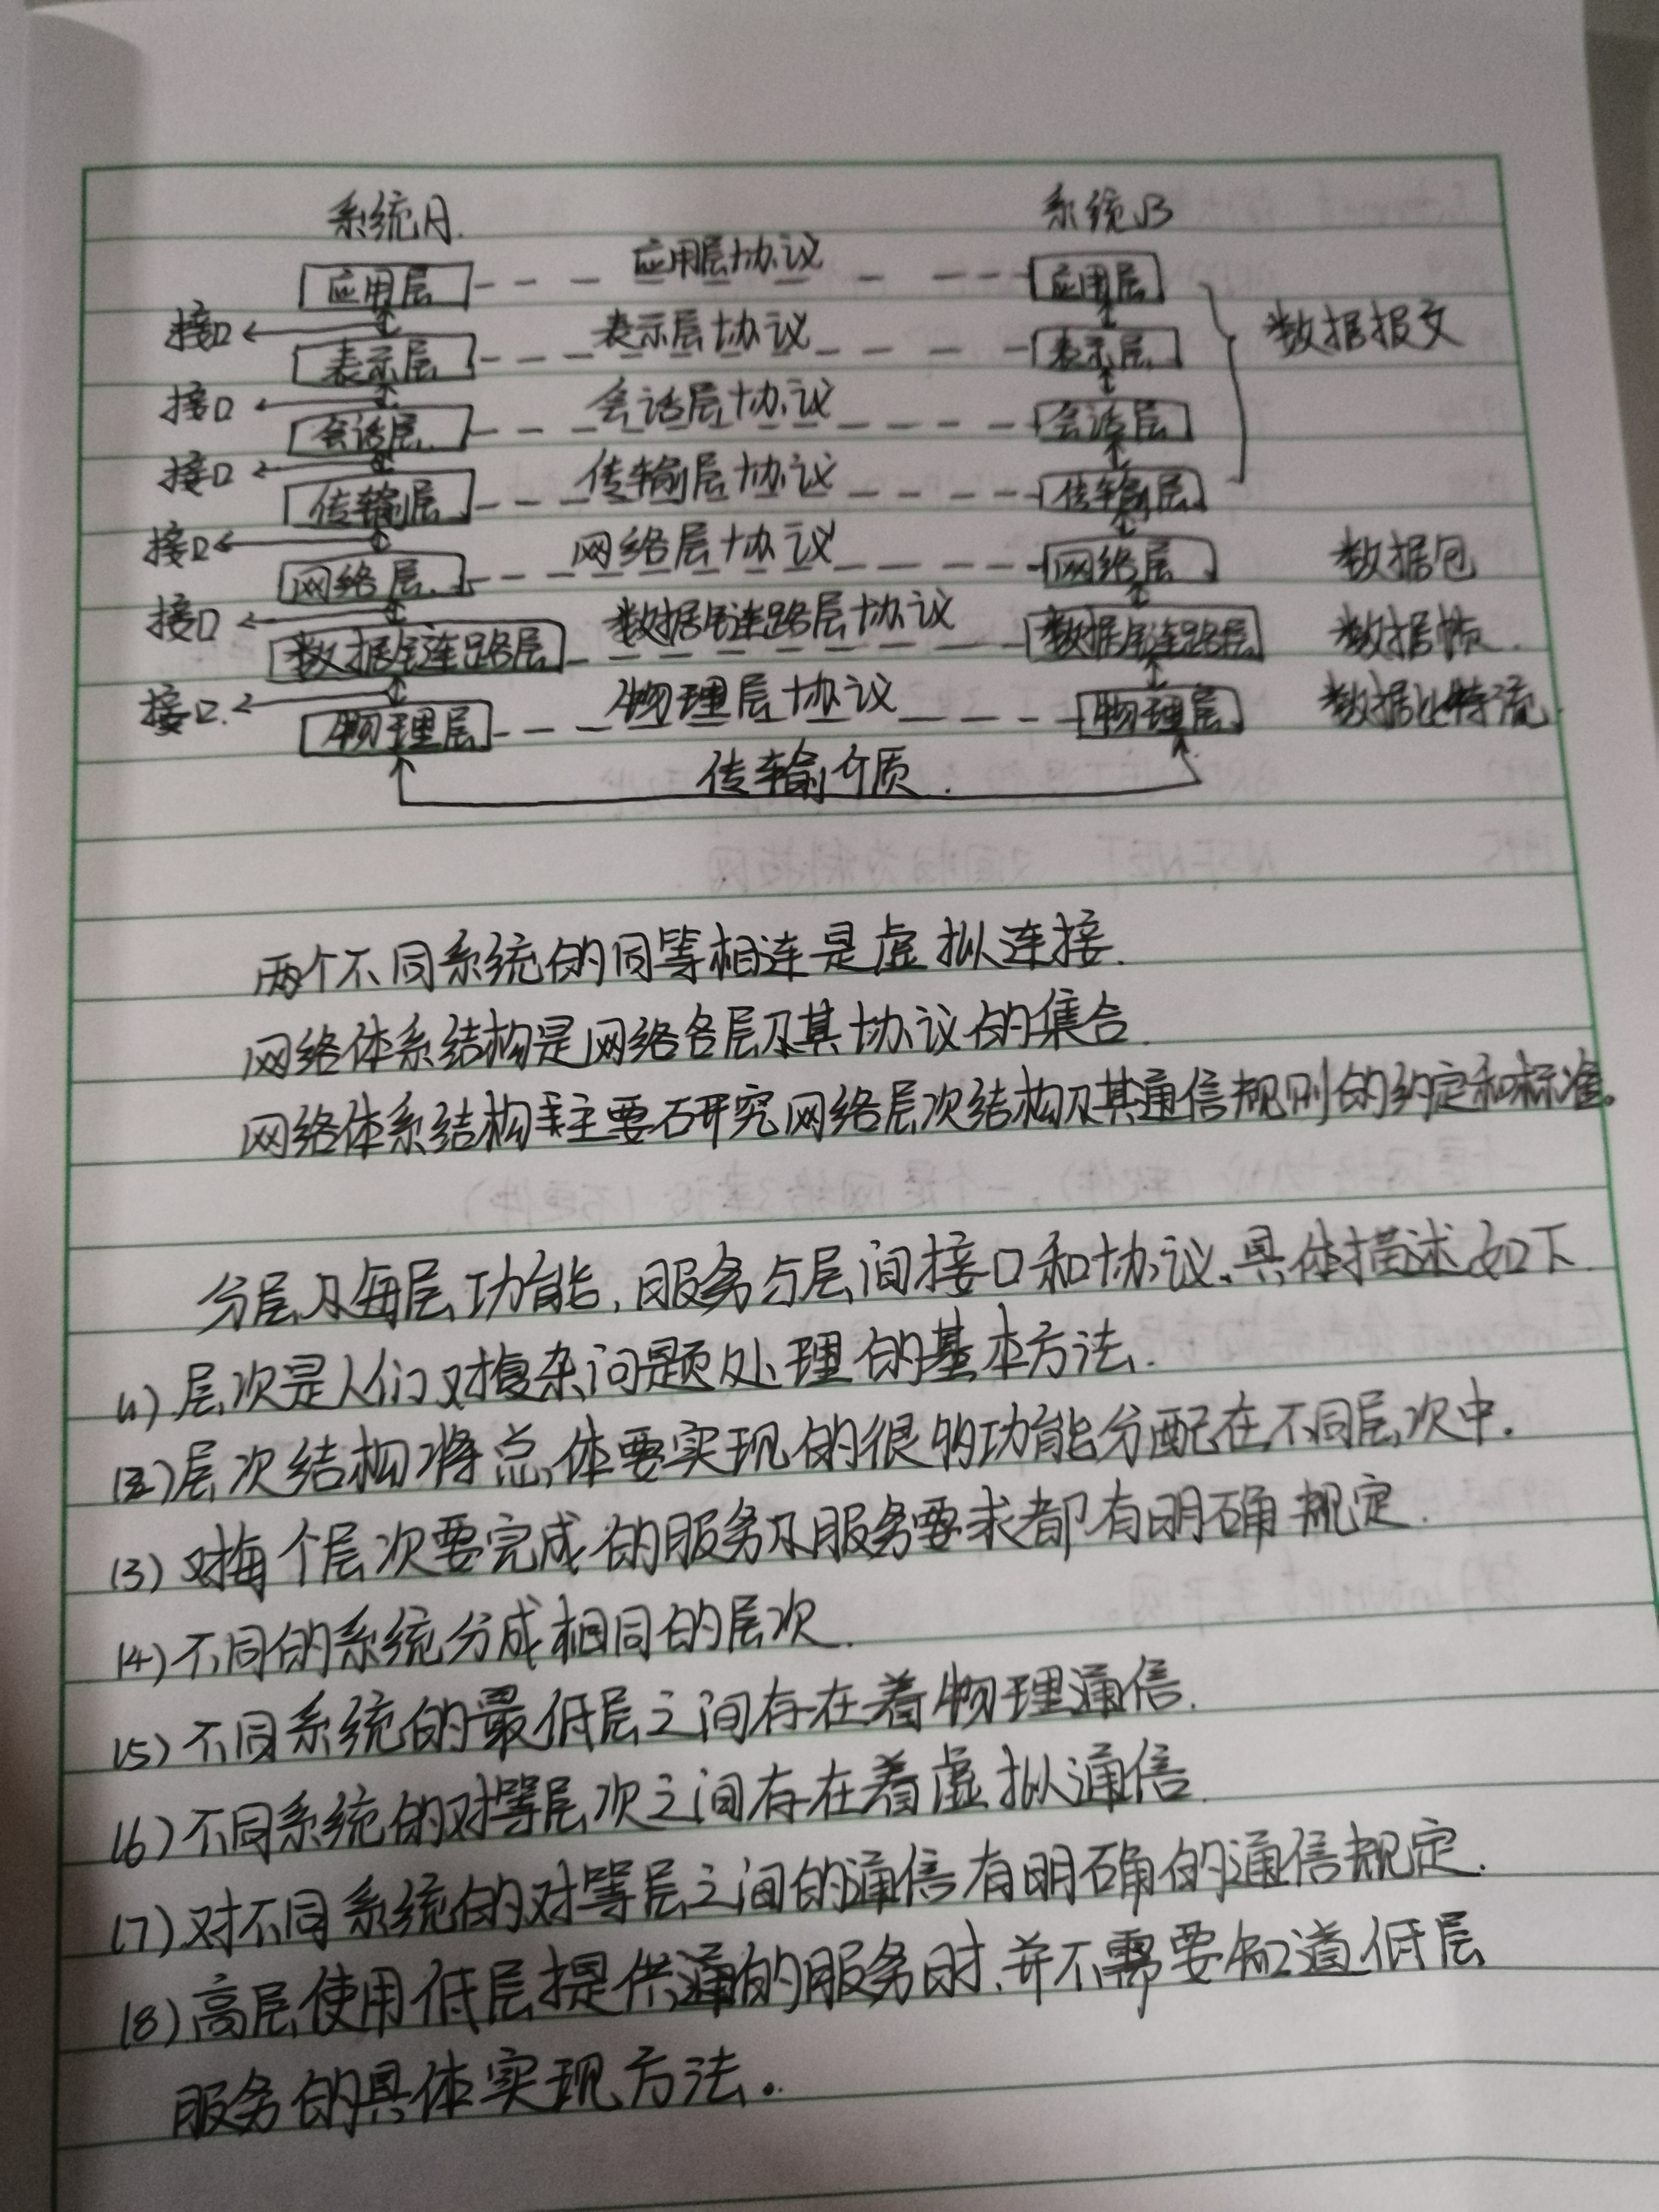 系统A. 系统B
应用层 应用层协议 应用层
接口 数据报文
表示层 表示层协议 表示层
接口
会话层 会话层协议 会话层
接口
传输层 传输层协议 传输层
接口
网络层 网络层协议 网络层 数据包
接口
数据链连路层 数据链连路层协议 数据链连路层 数据帧.
接口.
物理层 物理层协议 物理层 数据比特流
传输介质.
两个不同系统的同等相连是虚拟连接.
网络体系结构是网络各层及其协议的集合.
网络体系结构主要研究网络层次结构及其通信规则的约定和标准。
分层及每层功能,服务与层间接口和协议.具体描述如下.
(1)层次是人们对复杂问题处理的基本方法.
(2)层次结构将总体要实现的很多功能分配在不同层次中.
(3)对每个层次要完成的服务及服务要求都有明确规定.
(4)不同的系统分成相同的层次.
(5)不同系统的最低层之间存在着物理通信.
(6)不同系统的对等层次之间存在着虚拟通信.
(7)对不同系统的对等层之间的通信有明确的通信规定.
(8)高层使用低层提供的服务时,并不需要知道低层
服务的具体实现方法.